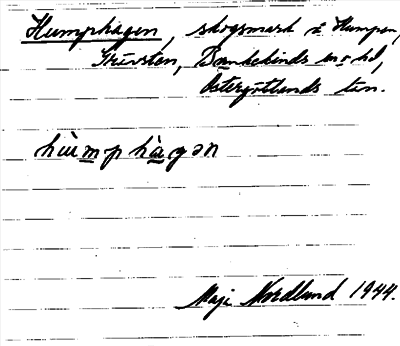 Humphagen, skogsmark i Humpen,
Skärsten, Bankekinds sn o hd,
Östergötlands län.
hùmphàgən
Maja Nordlund 1944.